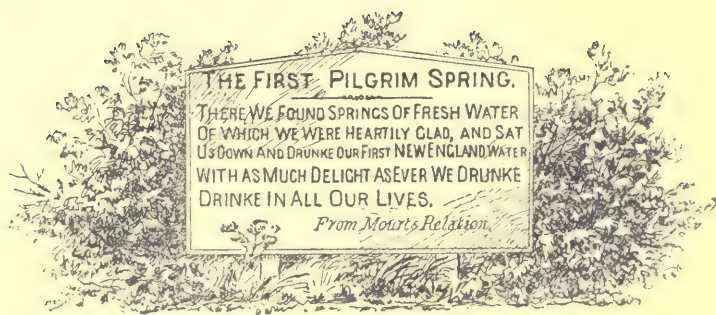 THE FIRST PILGRIM SPRING.
THERE WE FOUND SPRINGS OF FRESH WATER
OF WHICH WE WERE HEARTILY GLAD, AND SAT
US DOWN AND DRUNKE OUR FIRST NEW ENGLAND WATER
WITH AS MUCH DELIGHT AS EVER WE DRUNKE
DRINKE IN ALL OUR LIVES.
From Mourts Relation